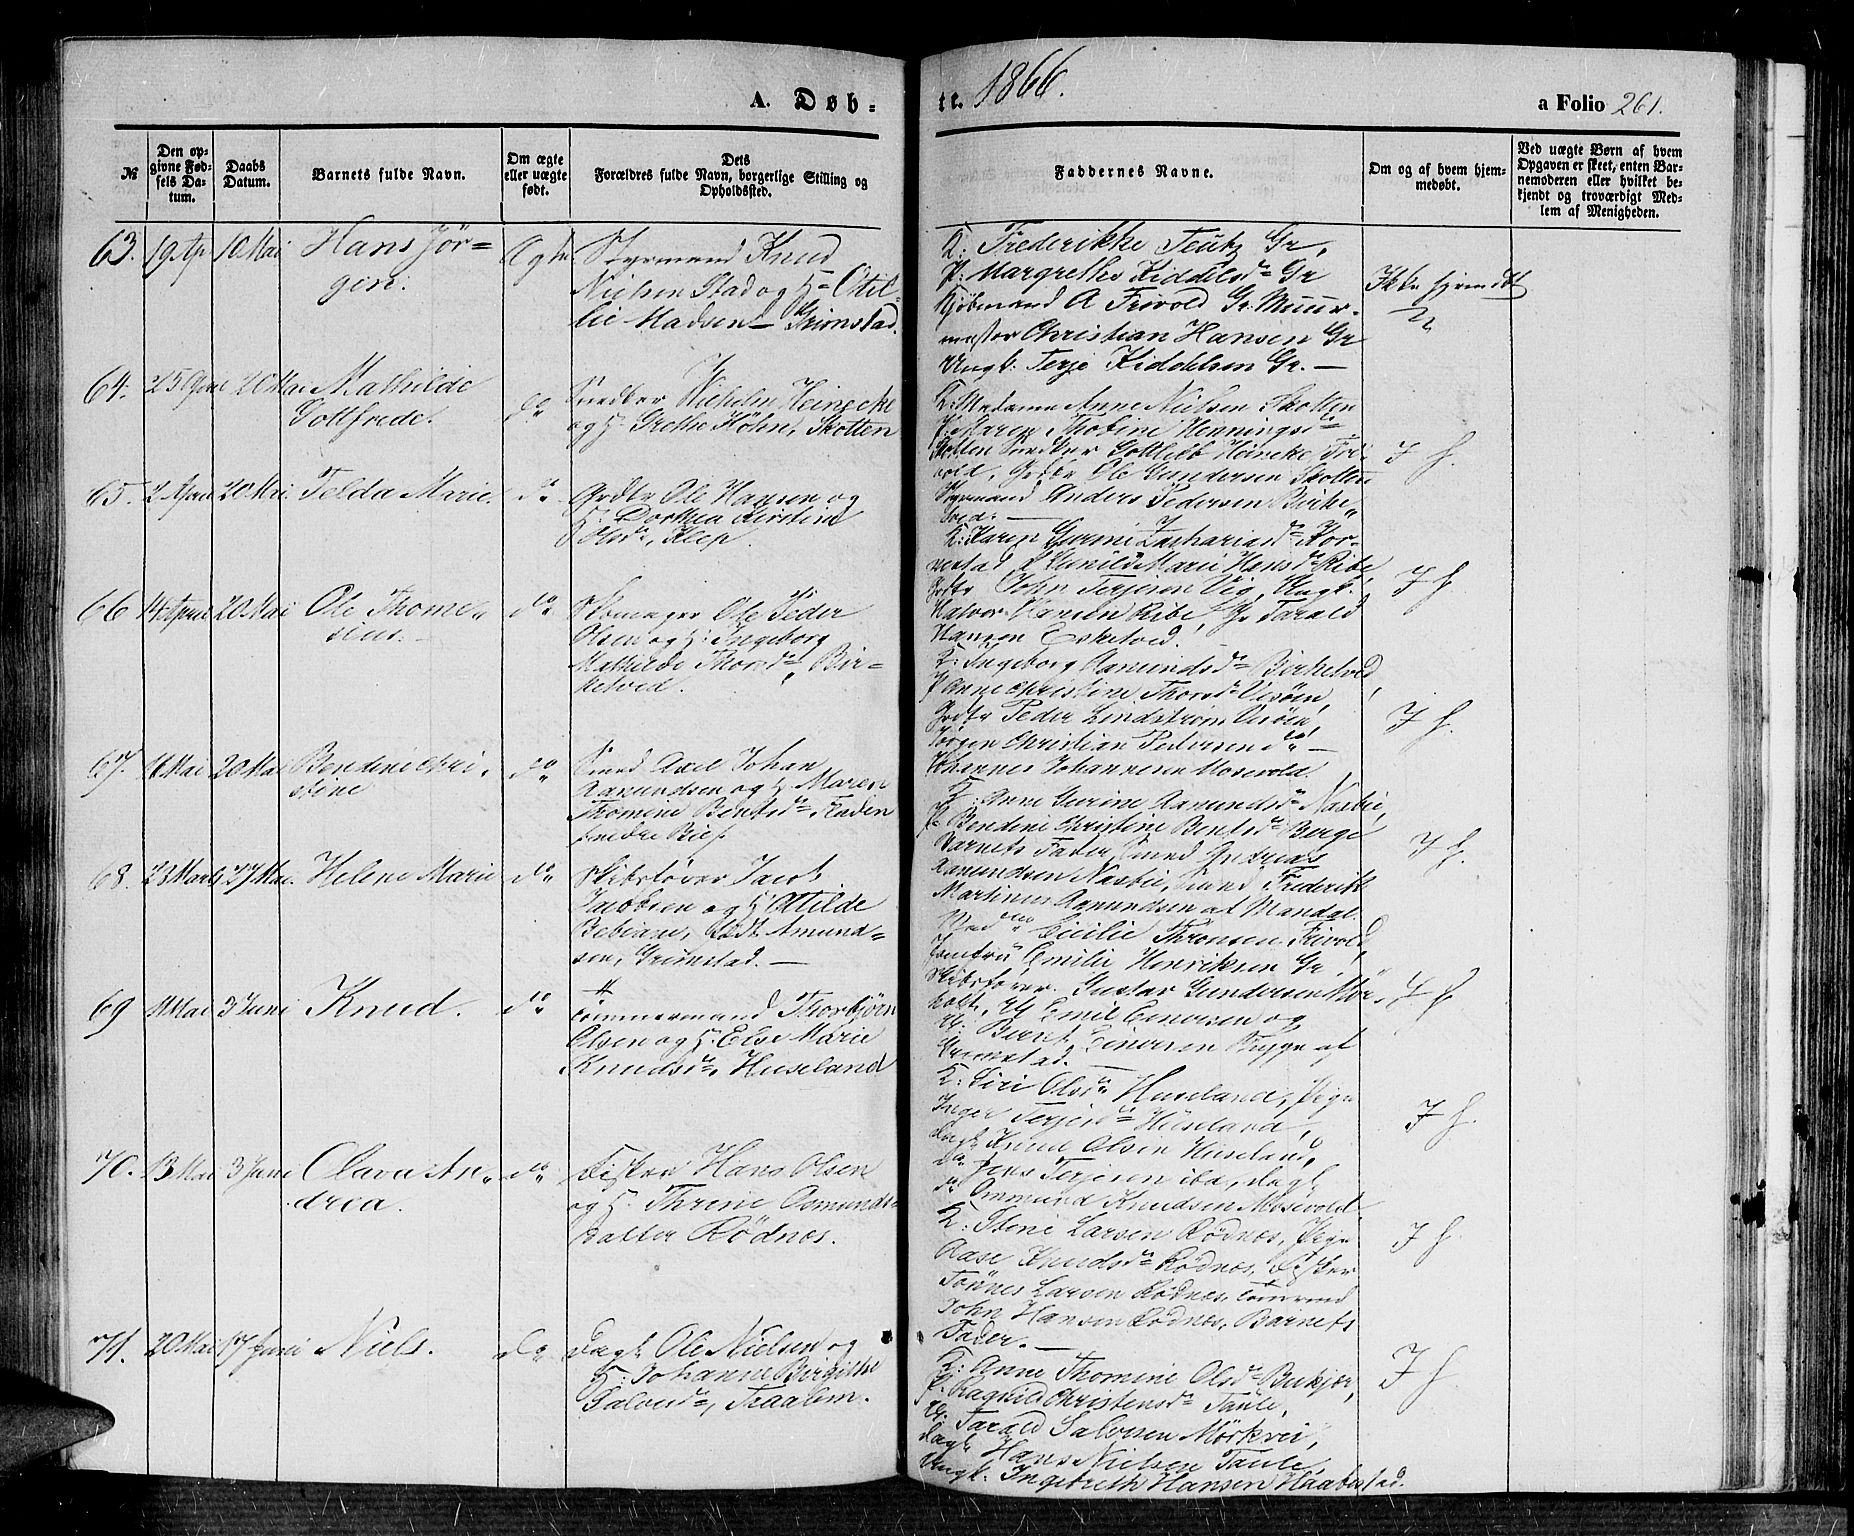 A. Døb-
te. 1866.
a Folio 261.
№
Den op-
givne Fød-
sels Da-
tum.
Daabs
Datum.
Barnets fulde Navn.
Om ægte
eller uægte
født.
Dets
Forældres fulde Navn, borgerlige Stilling og
Opholdssted.
Faddernes Navne.
Om og af hvem hjem-
medøbt.
Ved uægte Børn af hvem
Opgaven er skeet, enten Bar-
nemoderen eller hvilket be-
kjendt og troværdigt Med-
lem af Menigheden.
63. 19 Ap 10 Mai Hans Jör=
gen.
Ægte
Styrmand Knud
Nielsen Stad og H= Otil=
lie Madsen - Grimstad.
K: Frederikke Teutz Gr,
P: Margrethe Kiddelsdr Gr
Kjöbmand A Frivold Gr. Muur-
mester Christian Hansen Gr
Ungk. Terje Kiddelsen Gr. —
Ikke hjemdøbt
64. 25 April 20 Mai Mathilde
Gottfrede.
do
Snedker Wilhelm Heinecke
og H. Grethe Höhn, Skotten
K: Madame Anne Nielsen Skotten
P. Maren Thobine Henningsdr
Skotten Snedker Gottlieb Heineke Fri-
vold, Gdbr Ole Gundersen Skotten
Styrmand Anders Pedersen Birke-
tved. —
I h.
65. 2 April 20 Mai Telda Marie.
do
Gdbr Ole Hansen og
H. Dorthea Kirstine
Olsdr, Klep.
K: Karen Gurine Zachariasdr Hor-
vestad, P. Gunild Marie Hansdr Ribe
Gdbr John Terjesen Vig, Ungk.
Halvor Hansen Ribe, Gb Tarald
Hansen Esketved.
I h
66 14 April 20 Mai Ole Thome-
sius.
do
Skomager Ole Peder
Olsen og H: Ingeborg
Mathilde Thorsdr, Bir-
ketved.
K: Ingeborg Aamundsdr Birketved,
P Anne Christine Thorsdr Vesöen,
Gdbr Peder Lindström Vesöen,
Jörgen Christian Pedersen do —
Johannes Johannesen Mosevold.
I h.
67. 11 Mai 20 Mai Bendine Chri-
stine
do
Smed Axel Johan
Aamundsen og H Maren
Thomine Bentsdr, Fladen
K: Anne Gurine Aamundsdr Næsbie,
P. Bendine Christine Bentsdr Berge
Barnets Fader, Smed Andreas
Aamundsen Næsbie, Smed Frederik
Martinus Aamundsen af Mandal.
I h.
68. 23 Marts 27 Mai. Helene Marie
do
Skibsfører Jacob
Jacobsen og H Otilde
Bebiane, født Amund=
sen, Grimstad. —
Cicilie Thronsen Frivold,
Jomfru Emilie Henriksen Gr.,
Skibsfører Gustav Gundersen Mör-
holt, Emil Evensen og
Berent Einersen Bryge af
Grimstad.
I h
69 11 Mai 3 Juni Knud.
do
Tømmermand Thorbjörn
Olsen og H. Else Marie
Knudsdr, Huseland
K: Siri Olsdr Huseland, Pige
Inger Terjesdr Huseland,
Dagl. Knud Olsen Huseland,
do Jens Terjesen ibd, Dagl
Ommund Knudsen Mosevold
I h.
70. 13 Mai 3 Juni Olava An-
drea.
do
Fisker Hans Olsen
og H. Threne Osmunds-
datter Rödnes.
K: Stene Larsen Rödnes, Pige
Aase Knudsdr Rödnes, Fisker
Tönnes Larsen Rödnes, Tömmrmd
John Hansen Rödnes, Barnets
Fader. —
I h.
71. 20 Mai 17 Juni Niels.
do
Dagl Ole Nielsen og
H. Johanne Birgithe
Salvesdr, Traalem.
K: Anne Thomine Olsdr Birkjær,
P. Ragnild Christensdr Taule,
Tarald Salvesen Mörkvei,
Dagl. Hans Nielsen Taule
Ungk. Ingebreth Hansen Haabestad.
I h